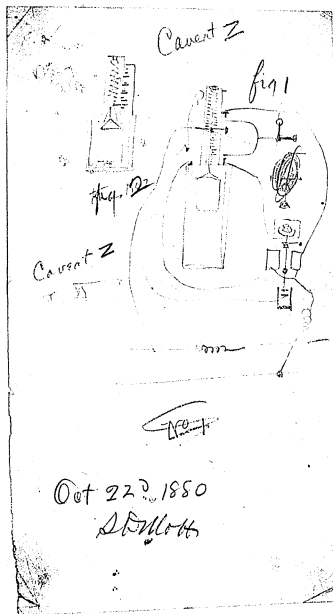 Cavert Z
fig 1
Fig. 2
Cavert Z
Oct 22d 1880
S D Mott